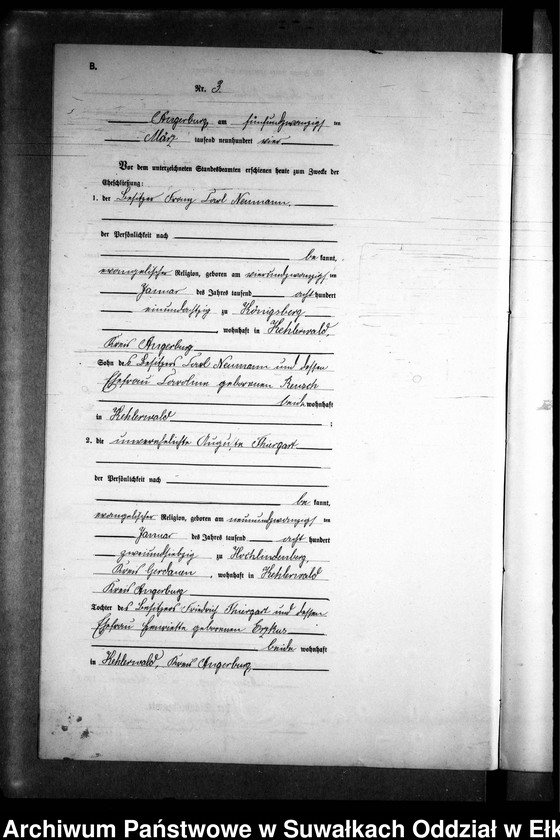 B.
Nr. 3.
Angerburg, am fünfundzwanzigsten
März tausend neunhundert vier
Vor dem unterzeichneten Standesbeamten erschienen heute zum Zwecke der
Eheschließung:
1. der Besitzer Franz Carl Neumann,
der Persönlichkeit nach
bekannt,
evangelischer Religion, geboren am vierundzwanzigsten
Januar des Jahres tausend achthundert
einundachtzig zu Königsberg
, wohnhaft in Kehlerwald,
Kreis Angerburg
Sohn des Besitzers Carl Neumann und dessen
Ehefrau Caroline geborenen Reusch
beide wohnhaft
in Kehlerwald ;
2. die unverehelichte Auguste Thiergart
der Persönlichkeit nach
bekannt,
evangelischer Religion, geboren am neunundzwanzigsten
Januar des Jahres tausend acht hundert
zweiundsiebzig zu
Kreis Gerdauen, wohnhaft in Kehlerwald
Kreis Angerburg
Tochter des Besitzers Friedrich Thiergart und dessen
Ehefrau Henriette geborenen
beide wohnhaft
in Kehlerwald, Kreis Angerburg,
Archiwum Państwowe w Suwałkach Oddział w Ełk